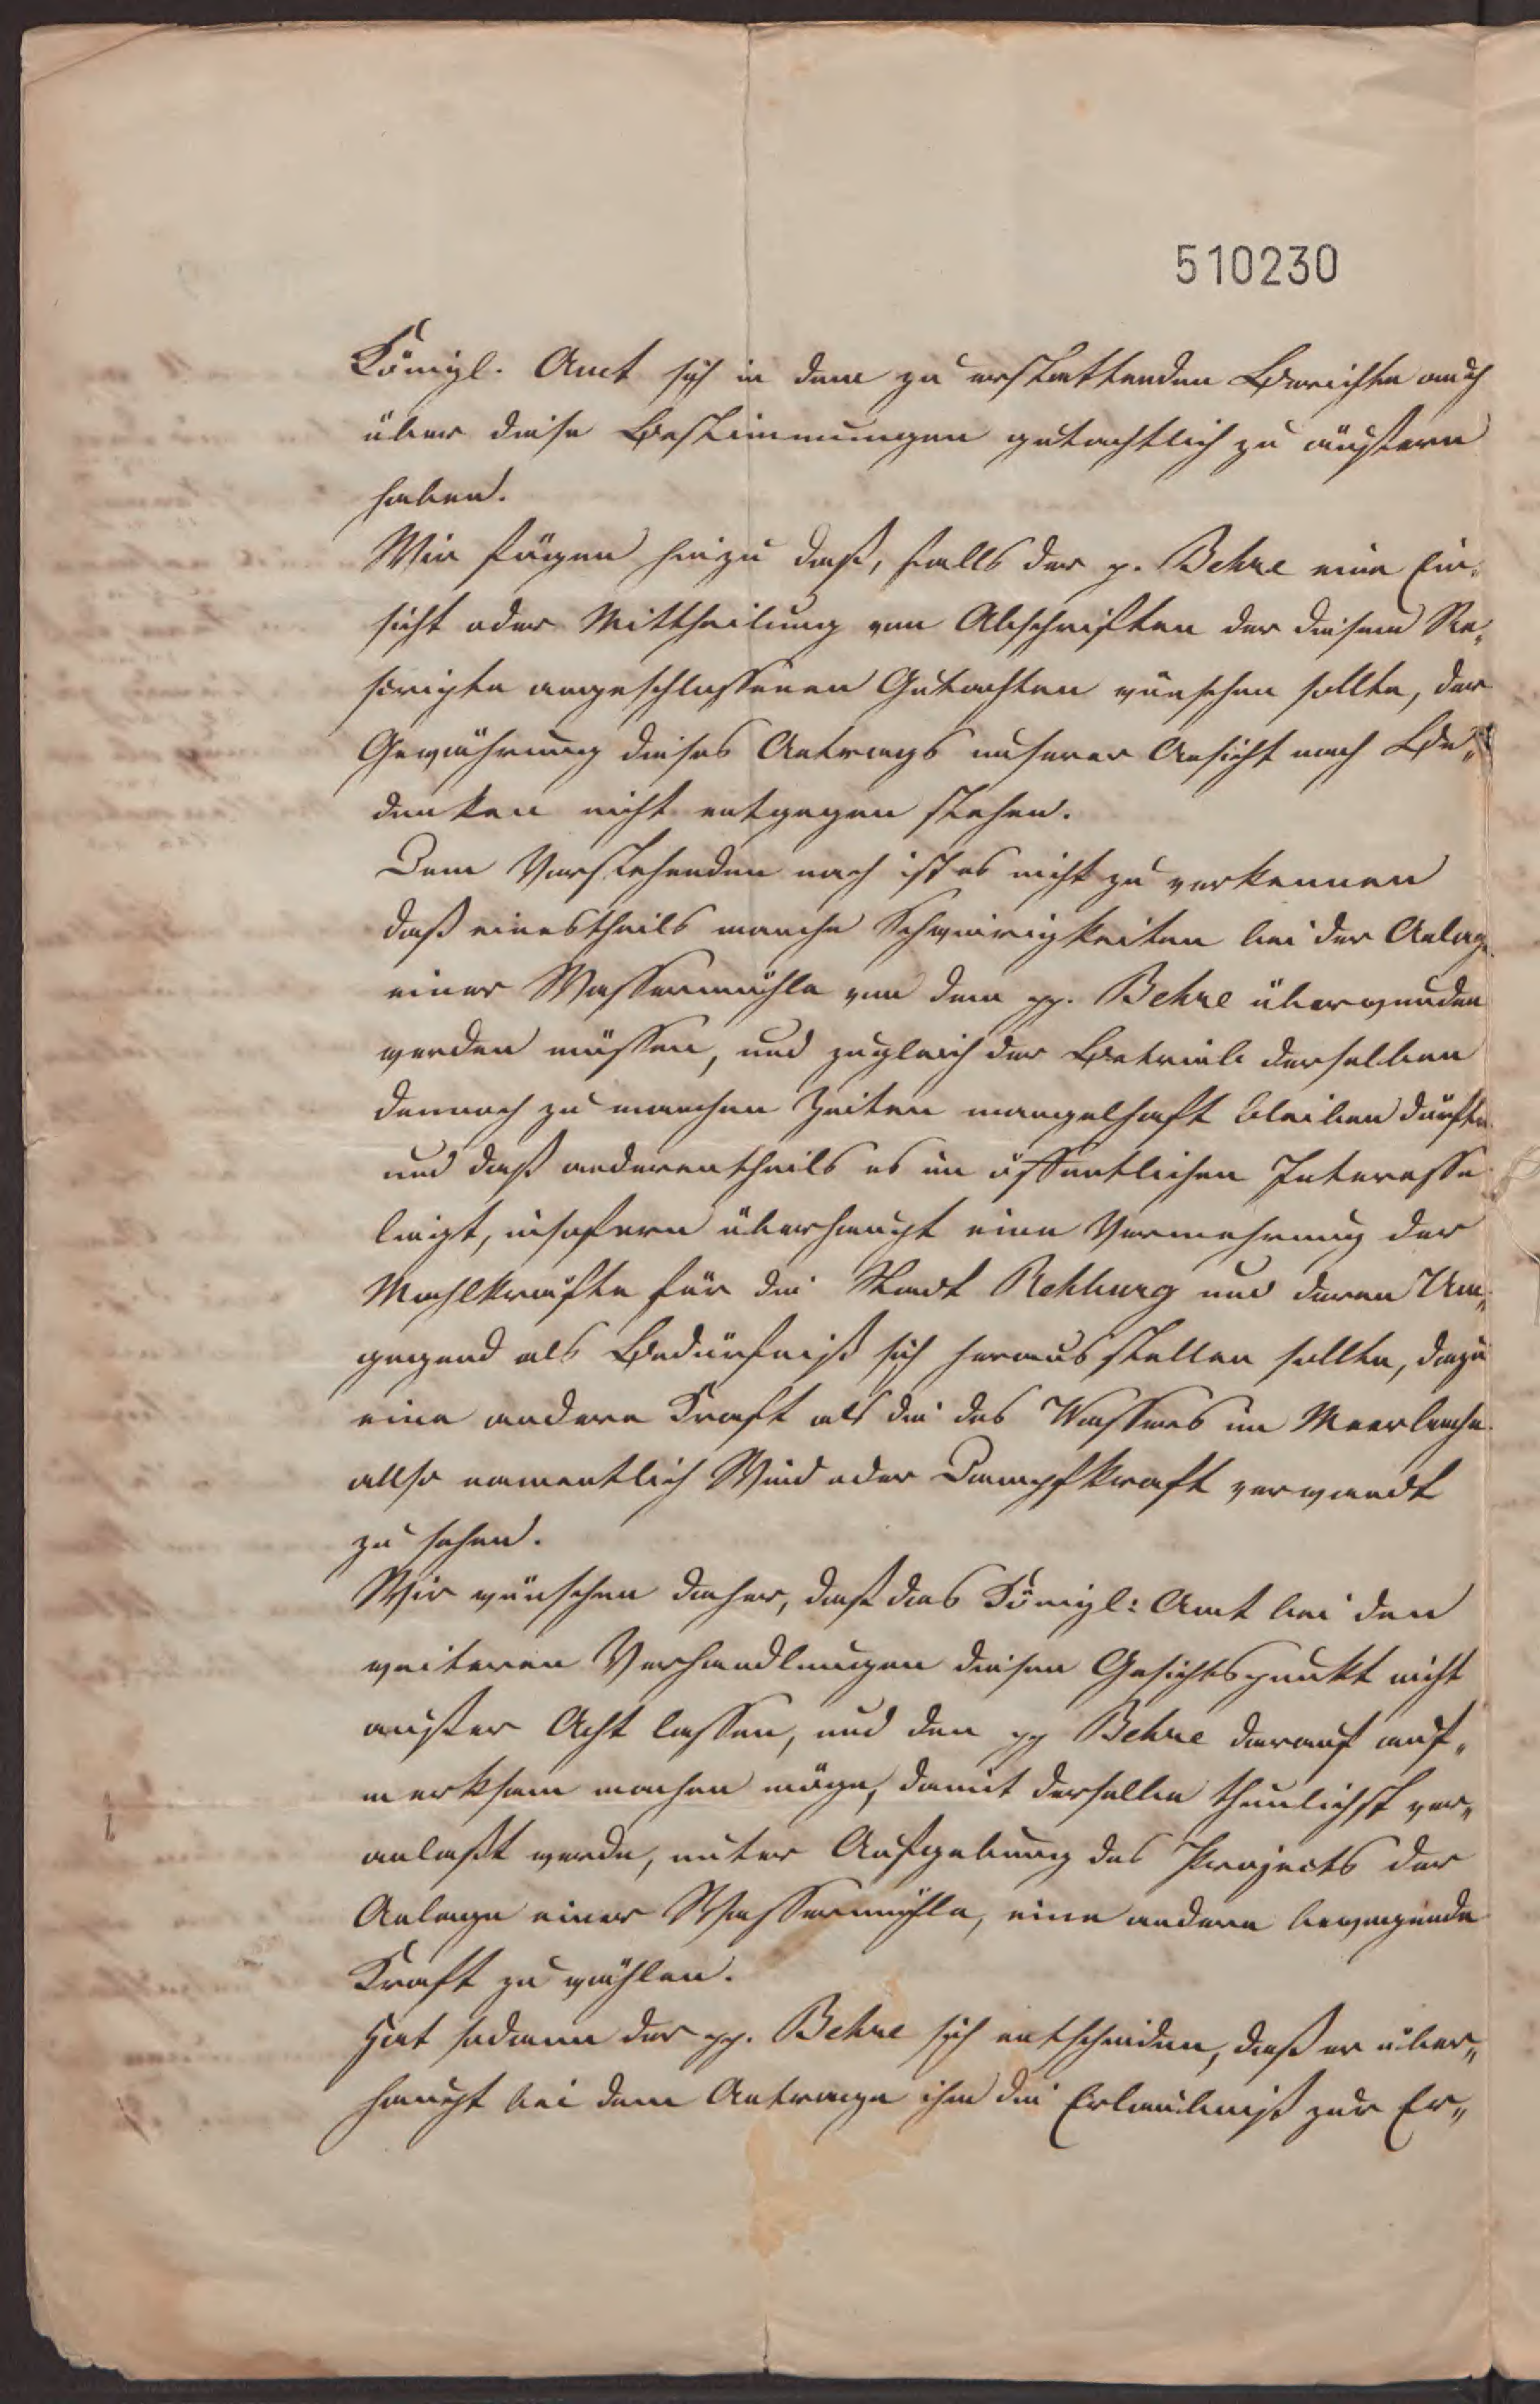 510230
Königl. Amt sich in dem zu erstattenden Berichte auch
über diese Bestimmungen gutachtlich zu äußern
haben.
Wir fügen hinzu daß, falls der p. Behre eine Ein-
sicht oder Mittheilung von Abschriften der diesem Re-
scripte angeschlossenen Gutachten wünschen sollte, der
Gewährung dieses Antrags unserer Ansicht nach Be-
denken nicht entgegen stehen.
Dem Vorstehenden nach ist es nicht zu verkennen
daß einestheils manche Schwierigkeiten bei der Anlage
einer Wassermühle von dem pp. Behre überwunden
werden müssen, und zugleich der Betrieb derselben
dennoch zu manchen Zeiten mangelhaft bleiben dürfte
und daß anderentheils es im öffentlichen Interesse
liegt, insofern überhaupt eine Vermehrung der
Mahlkräfte für die Stadt Rehburg und deren Um-
gegend als Bedürfniß sich herausstellen sollte, dazu
eine andere Kraft als die des Wassers im Meerbache
also namentlich Wind oder Dampfkraft verwandt
zu sehen.
Wir wünschen daher, daß das Königl: Amt bei den
weiteren Verhandlungen diesen Gesichtspunkt nicht
außer Acht lassen, und den pp Behre darauf auf„
merksam machen möge, damit derselbe thunlichst ver„
anlaßt werde, unter Aufgebung des Projects der
Anlage einer Wassermühle, eine andere bewegende
Kraft zu wählen.
Hat sodann der pp. Behre sich entschieden, daß er über„
haupt bei dem Antrage ihm die Erlaubniß zur Er„